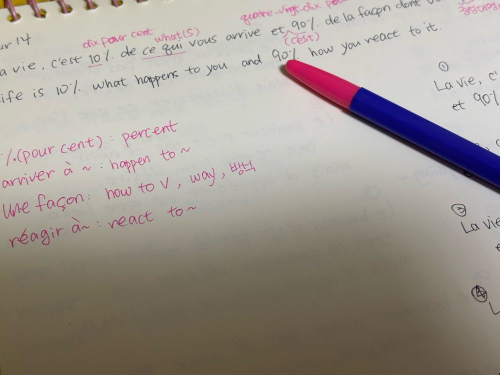 ur 14
dix pour cent what(s) quatre-vingt-dix pour
a vie, c'est 10% de ce qui vous arrive et 90% de la façon dont
(c'est)
ife is 10% what happens to you and 90% how you react to it.
%(pour cent) : percent
arriver à ~ : happen to ~
une façon : how to V, way, 방법
réagir à~ : react to~
①
La vie, c'
et 90%
③
La vie
④
L